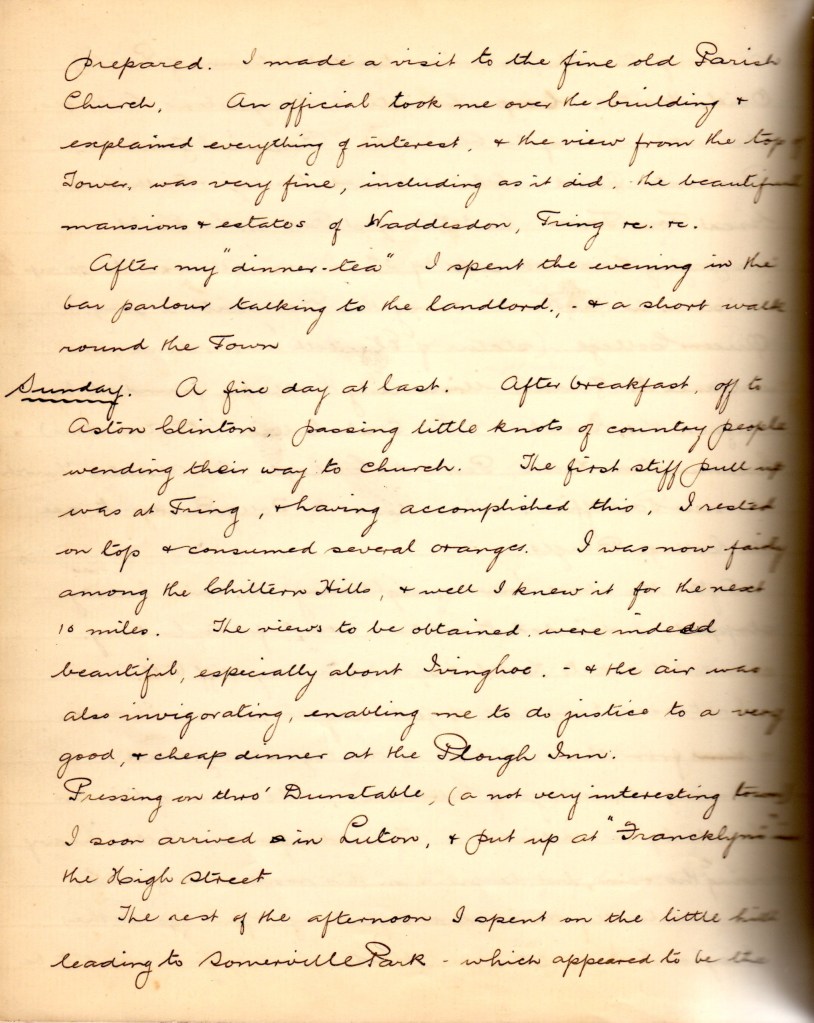 prepared. I made a visit to the fine old Parish
Church. An official took me over the building &
explained everything of interest, & the view from the top of
Tower, was very fine, including as it did, the beautiful
mansions & estates of Waddesdon, Tring &c. &c.
After my "dinner-tea" I spent the evening in the
bar parlour talking to the landlord., - & a short walk
round the Town
Sunday. A fine day at last. After breakfast, off to
Aston Clinton, passing little knots of country people
wending their way to church. The first stiff pull up
was at Tring, & having accomplished this, I rested
on top & consumed several oranges. I was now fairly
among the Chiltern Hills, & well I knew it for the next
10 miles. The views to be obtained were indeed
beautiful, especially about Ivinghoe. - & the air was
also invigorating, enabling me to do justice to a very
good, & cheap dinner at the Plough Inn.
Pressing on thro' Dunstable, (a not very interesting town)
I soon arrived in Luton, & put up at "Francklyn's"
the High Street
The rest of the afternoon I spent on the little hill
leading to Somerville Park - which appeared to be the